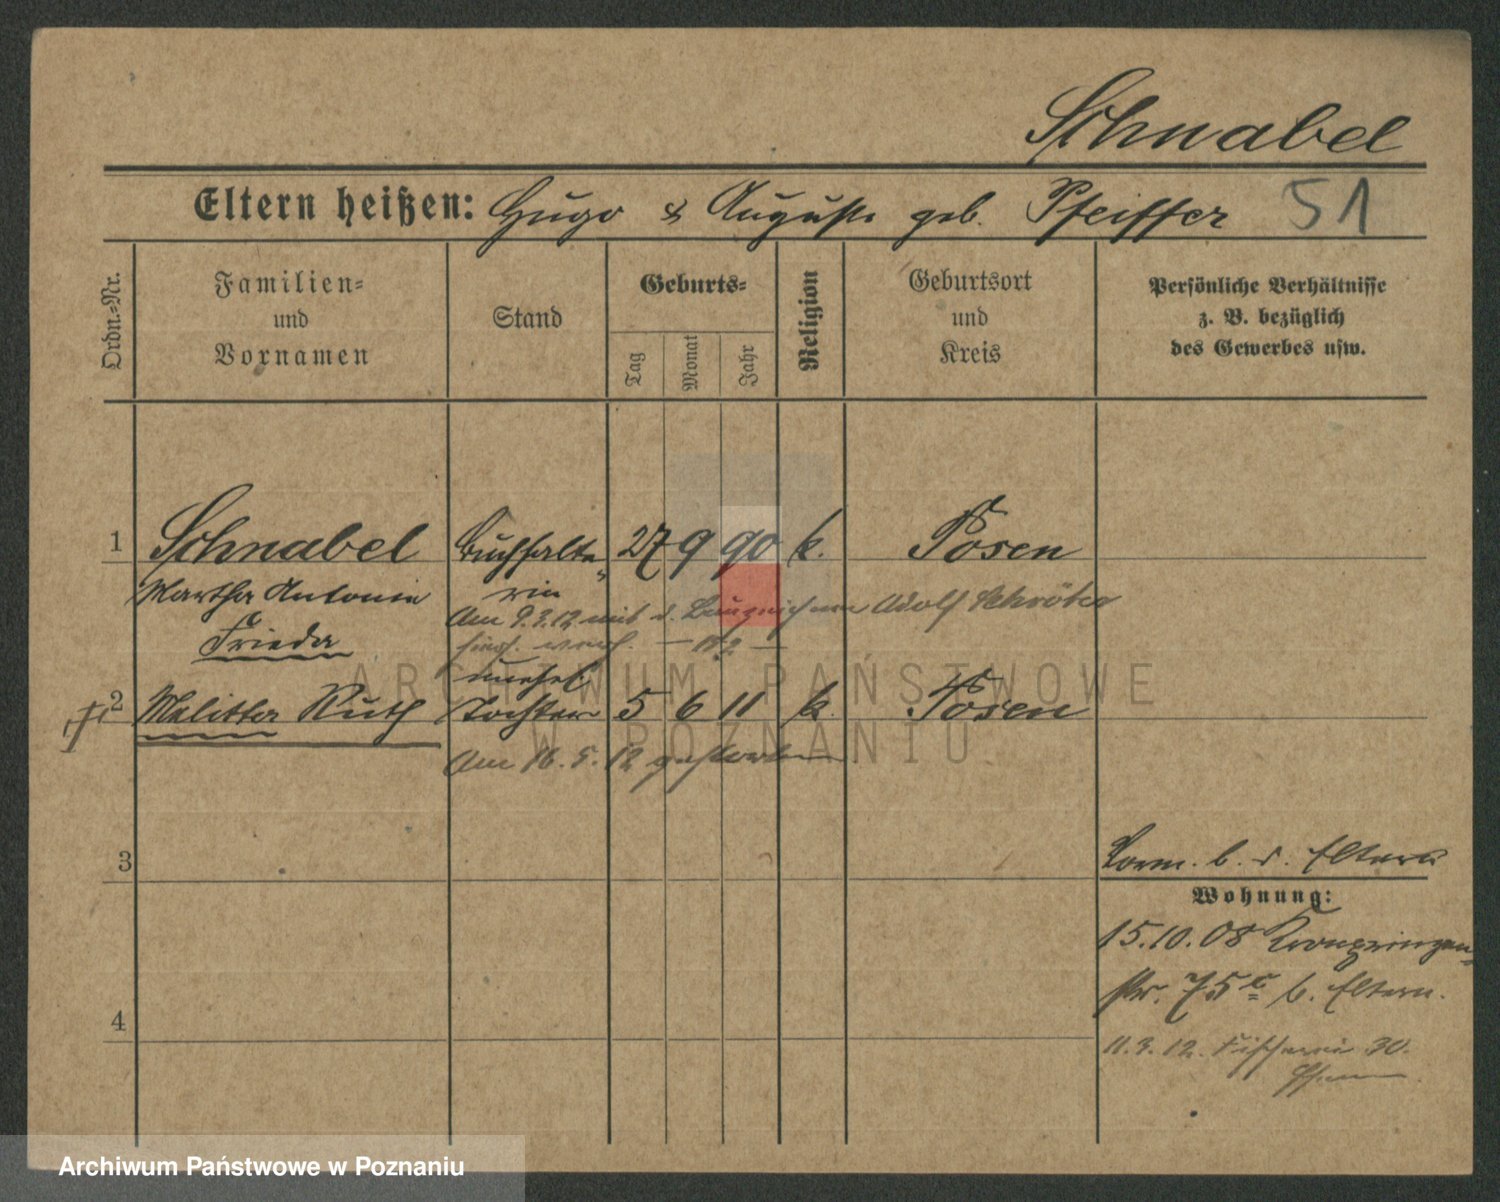 Schnabel
Eltern heißen: Hugo & Auguste geb. Pfeiffer 51
Ordn.-Nr.
Familien-
und
Vornamen
Stand
Geburts-
Tag
Monat
Jahr
Religion
Geburtsort
und
Kreis
Persönliche Verhältnisse
z. B. bezüglich
des Gewerbes usw.
1 Schnabel Buchhalte- 27 9 90 k. Posen
Martha Antonie rin
Am 9.3.12 mit d. Bauzeichner Adolf Schröter
Frieda
unehel.
2 Melitta Ruth Tochter 5 6 11 k. Posen
Am 16. 5. 12 gestorben
3
Vorm. b. d. Eltern
Wohnung:
15.10.08 Kronprinzen-
str. 75c b. Eltern.
4
11.3.12. Fischerei 30.
ARCHIWUM PAŃSTWOWE
W POZNANIU
Archiwum Państwowe w Poznaniu